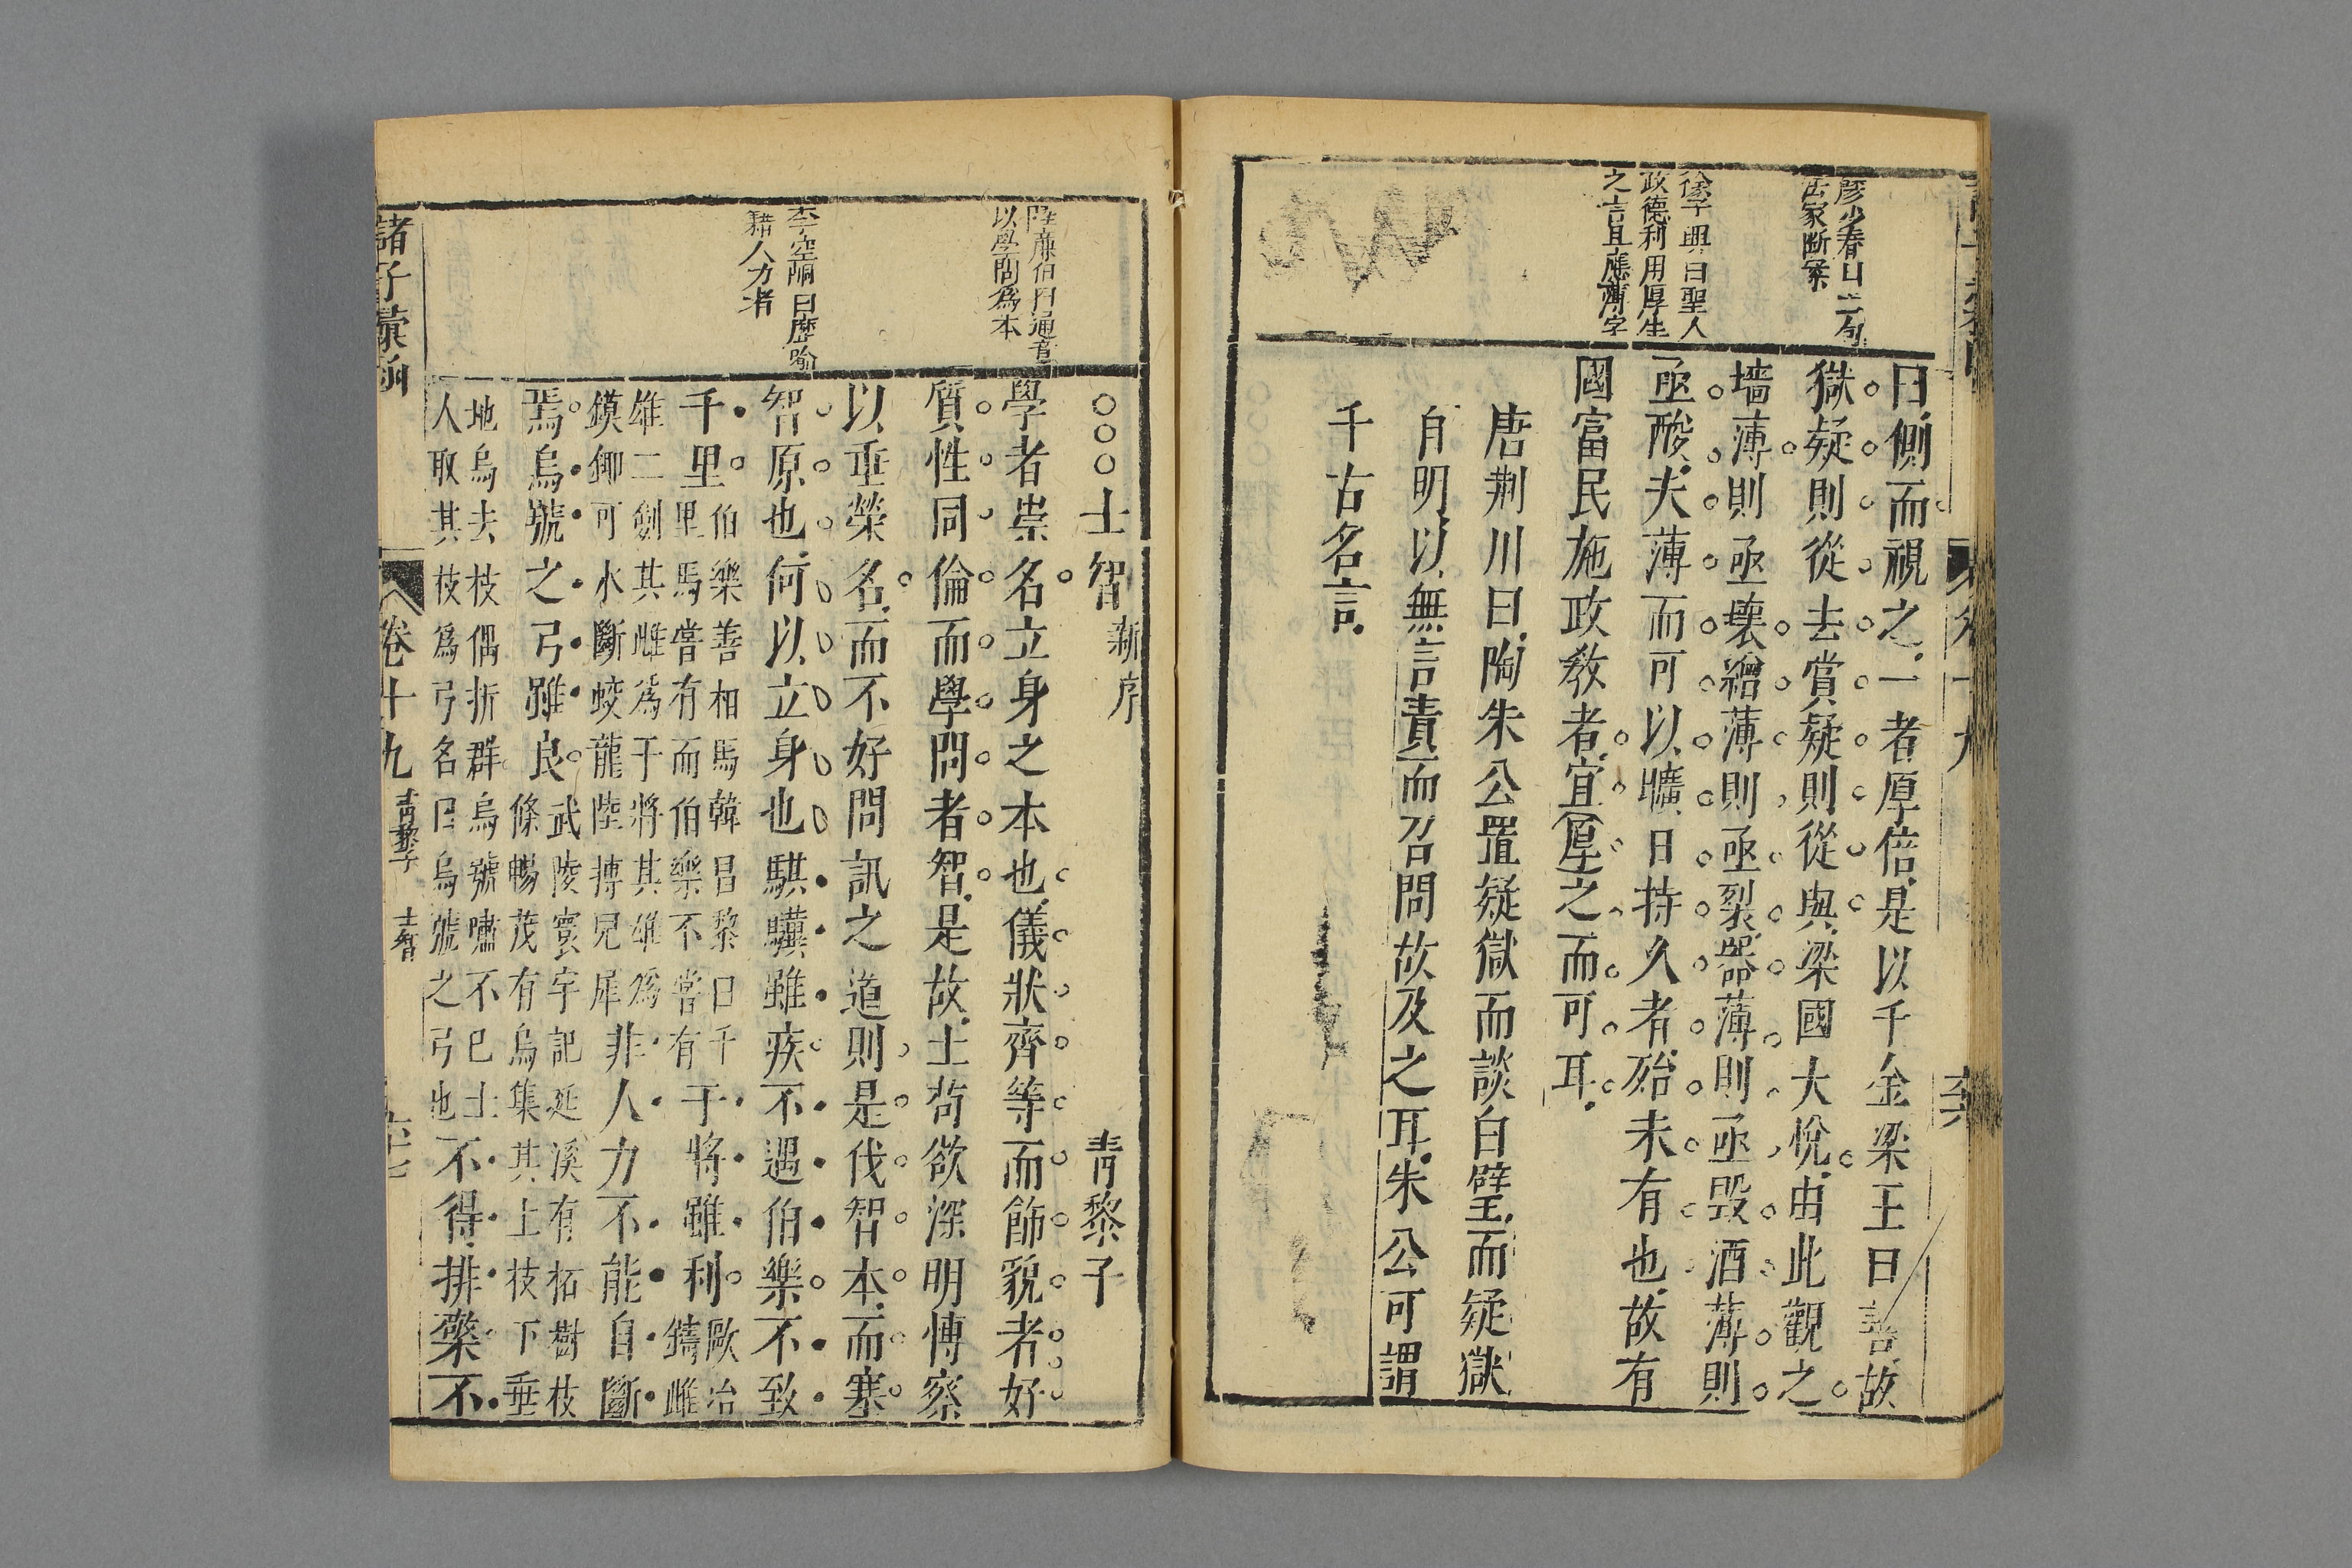 彥少春曰二句
法家斷案
徐子與曰聖人
政德利用厚生
之言且應薄字
曰側而視之一者厚倍是以千金梁王曰善故
獄疑則從去賞疑則從與梁國大悅由此觀之
墻薄則亟壞繒薄則亟裂器薄則亟毀酒薄則
亟酸夫薄而可以曠日持久者殆未有也故有
國富民施政教者宜厚之而可耳
唐荆川曰陶朱公置疑獄而談白璧而疑獄
自明以無言責而召問故及之耳朱公可謂
千古名言
陸廉伯曰通章
以學問爲本
李空同曰歷喻
藉人力者
○○○士智新序 青黎子
學者崇名立身之本也儀狀齊等而飾貌者好
質性同倫而學問者智是故士苟欲深明博察
以垂榮名而不好問訊之道則是伐智本而塞
智原也何以立身也騏驥雖疾不遇伯樂不致
千里伯樂善相馬韓昌黎曰千
里馬嘗有而伯樂不嘗有干將雖利歐冶
鑄雌
雄二劍其雌爲干將其雄爲
鏌鎁可水斷蛟龍陸摶兕犀非人力不能自斷
焉烏號之弓雖良武陵寰宇記延溪有柘樹枝
條暢茂有烏集其上枝下垂
地烏去枝偶折群烏號嘯不巳士
人取其枝爲弓名曰烏號之弓也不得排檠不
諸子彙函
卷十九
青黎子
士智